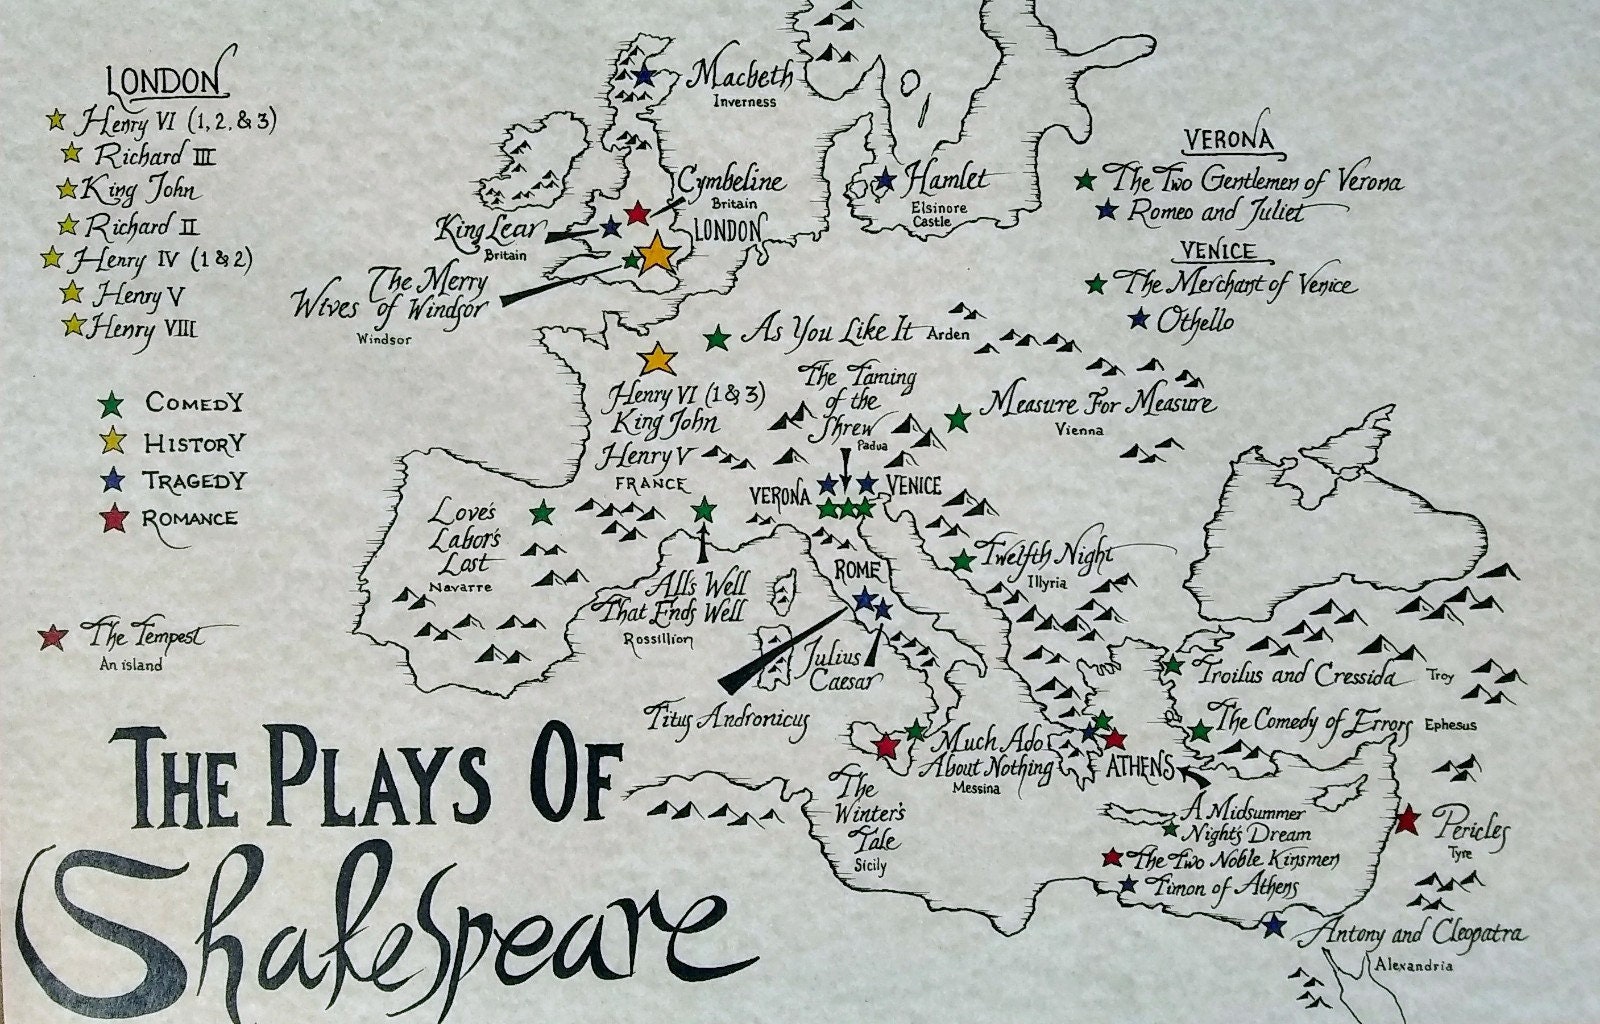 LONDON
Henry VI (1, 2, & 3)
Richard III
King John
Richard II
Henry IV (1 & 2)
Henry V
Henry VIII
COMEDY
HISTORY
TRAGEDY
ROMANCE
The Tempest
An island
THE PLAYS OF
Shakespeare
Macbeth
Inverness
Cymbeline
Britain
King Lear
Britain
LONDON
The Merry
Wives of Windsor
Windsor
Hamlet
Elsinore
Castle
VERONA
The Two Gentlemen of Verona
Romeo and Juliet
VENICE
The Merchant of Venice
Othello
As You Like It Arden
Henry VI (1 & 3)
King John
Henry V
FRANCE
The Taming
of the
Shrew
Padua
Measure For Measure
Vienna
VERONA
VENICE
Love's
Labor's
Lost
Navarre
All's Well
That Ends Well
Rossillion
ROME
Julius
Caesar
Titus Andronicus
Twelfth Night
Illyria
Troilus and Cressida Troy
The Comedy of Errors Ephesus
Much Ado
About Nothing
Messina
The
Winter's
Tale
Sicily
ATHENS
A Midsummer
Night's Dream
The Two Noble Kinsmen
Timon of Athens
Pericles
Tyre
Antony and Cleopatra
Alexandria